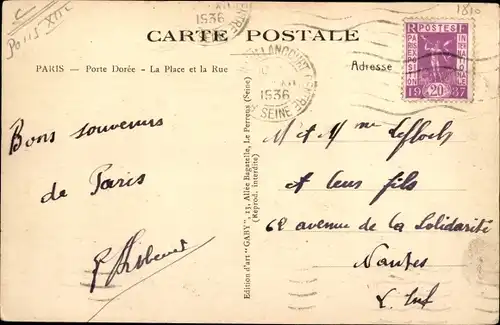 Paris XII
1936
CARTE POSTALE
1810
PARIS — Porte Dorée - La Place et la Rue
Adresse
BILLANCOURT CENTRE
1936
SEINE
R POSTES F
PARIS EXPOSITION INTERNATIONALE
19 20c 37
Bons souvenirs
de Paris
Edition d'art "GABY", 13, Allée Bagatelle, Le Perreux (Seine)
(Reprod. interdite)
M et Mme Lefloch
et leurs fils
62 avenue de la Solidarité
Nantes
L. Inf